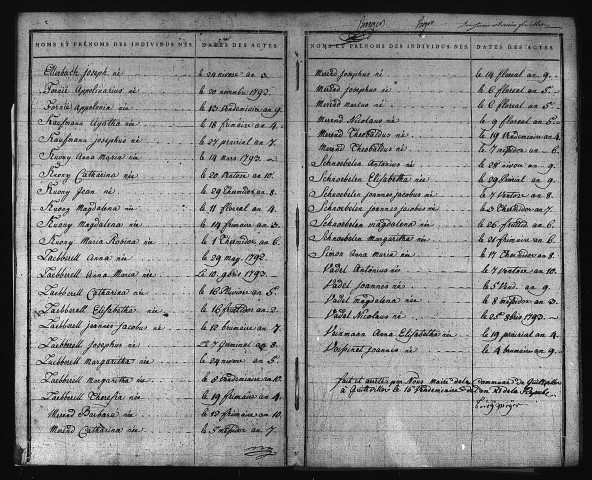 NOMS ET PRÉNOMS DES INDIVIDUS NÉS. DATES DES ACTES.
Ellerbach Joseph né le 29 nivose an 3.
Fornié Appolinarius né le 20 novembre 1792.
Fornie Appolonia née le 13 Vendemiaire an 9.
Kaufmann Agatha née le 18 frimaire an 4.
Kaufmann Josephus né le 27 prairial an 7.
Kuony Anna Maria née le 14 mars 1793.
Kuony Catharina née le 20 Ventose an 10.
Kuony Jean né le 29 Thermidor an 8.
Kuony Magdalena née le 11 floreal an 4.
Kuony Magdalena née le 14 frimaire an 3.
Kuony Maria Rosina née le 1 Thermidor an 6.
Laebberell Anna née le 29 may 1793.
Laebberell Anna Maria née Le 10 9bre 1793.
Laebberell Catharina née le 16 Pluviose an 5.
Laebberell Elisabetha née le 16 fructidor an 2.
Laebberell joannes jacobus né le 10 brumaire an 7.
Laebberell Josephus né Le 7 Germinal an 8.
Laebberell Margaritha née le 24 nivose an 5.
Laebberell Margaritha née le 8 Vendemiaire an 10.
Laebberell Theresia née le 19 frimaire an 4.
Merend Barbara née le 18 frimaire an 10.
Merend Catharina née le 5 mesidor an 7.
NOMS ET PRÉNOMS DES INDIVIDUS NÉS. DATES DES ACTES.
Merend Josephus né le 14 floreal an 9.
Merend Josephus né le 6 floreal an 5.
Merend Marcus né le 6 floreal an 5.
Merend Nicolaus né le 9 floreal an 6.
Merend Theobaldus né le 19 Vendemiaire an 4.
Merend Theobaldus né le 7 mesidor an 6.
Schnoebelin Antonius né le 28 nivose an 9.
Schnoebelin Elisabetha née le 29 floreal an 9.
Schnoebelin joannes jacobus né le 7 Ventose an 8.
Schnoebelen joannes jacobus né le 3 Thermidor an 7.
Schnoebelen magdalena née le 26 fructidor an 6.
Schnoebelen Margaritha née le 21 frimaire an 6.
Simon Anna Maria née le 17 Thermidor an 8.
Vadel Antonius né le 7 Ventose an 10.
Vadel joannes né le 5 Vend. an 9.
Vadel magdalena née le 8 mesidor an 3.
Vadel Nicolaus né le 25 8bre 1793.
Veinmann Anna Elisabetha née le 19 prairial an 4.
Voisinet joannes né le 4 brumaire an 9.
fait et arrêté par Nous Maire de la Commune de
à le 16 Vendemiaire an